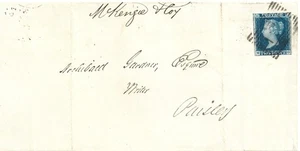 McKenzie & Coy
Archibald Gardner, Esquire
Writer
Paisley